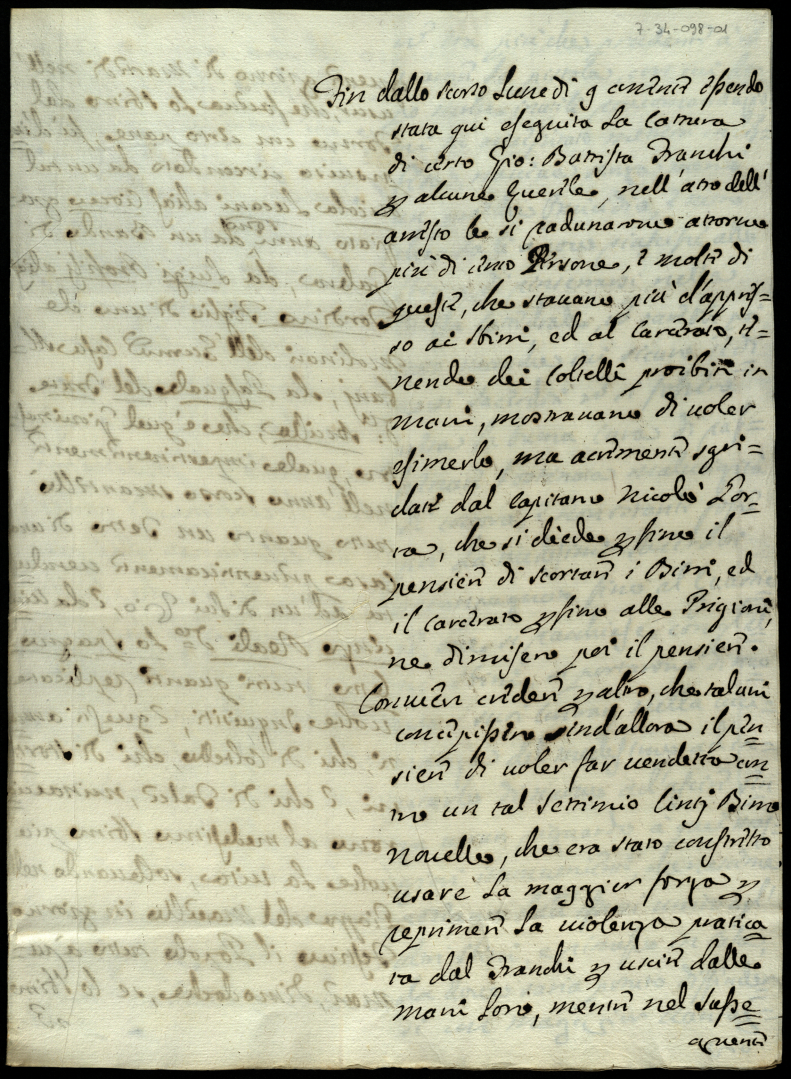 7-34-098-01
Fin dallo scorso Lunedì 9 corrente essendo
stata qui eseguita la Cattura
di certo Gio: Battista Franchi
p alcune Querele, nell'atto dell'
arresto le si radunarono attorno
più di cento Persone, e molte di
queste, che stavano più d'appres=
so ai Sbirri, ed al Carcerato, te=
nendo dei Coltelli proibiti in
mani, mostravano di voler
esimerlo, ma acremente sgri=
date dal Capitano Nicolò Por=
ta, che si diede p fine il
pensiere di scortare i Birri, ed
il Carcerato p fino alle Prigioni,
ne dimisero poi il pensiere.
Convien credere p altro, che taluni
concepissero sind'allora il pen=
siere di voler far vendetta con=
tro un tal Settimio Cintj Birro
Novello, che era stato constretto
usare la maggior forza p
reprimere la violenza pratica=
ta dal Franchi p uscire dalle
mani loro, mentre nel susse=
quente